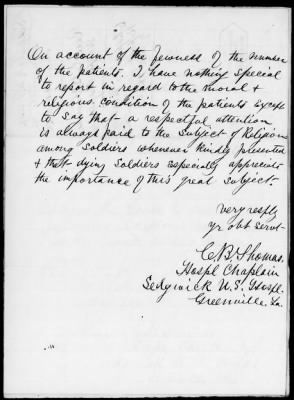 On account of the fewness of the number
of the patients. I have nothing special
to report in regard to the moral &
religious condition of the patients except
to say that a respectful attention
is always paid to the subject of Religion
among soldiers whenever kindly presented
& that dying soldiers especially appreciate
the importance of this great subject.
Very resply
yr obt servt
C. B. Thomas.
Hospl Chaplain
Sedgwick U.S. Hospl.
Greenville. La.